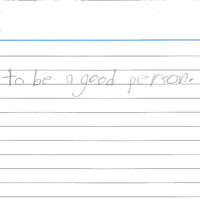 to be a good person.